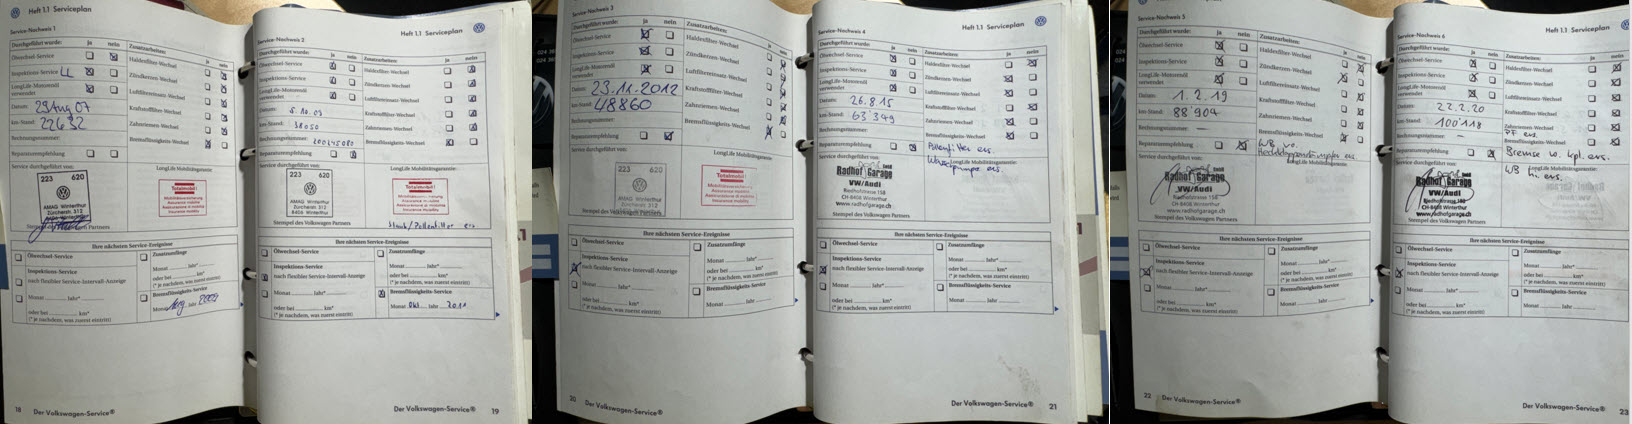 Heft 1.1 Serviceplan
Service-Nachweis 1
Durchgeführt wurde: ja nein Zusatzarbeiten: ja nein
Ölwechsel-Service Haldexfilter-Wechsel
Inspektions-Service LL Zündkerzen-Wechsel
LongLife-Motorenöl verwendet Luftfiltereinsatz-Wechsel
Datum: 29 Aug 07 Kraftstofffilter-Wechsel
km-Stand: 22632 Zahnriemen-Wechsel
Rechnungsnummer: Bremsflüssigkeits-Wechsel
Reparaturempfehlung
Service durchgeführt von: LongLife Mobilitätsgarantie:
223 620
AMAG Winterthur
Zürcherstr. 312
Totalmobil!
Stempel des Volkswagen Partners
Ihre nächsten Service-Ereignisse
Ölwechsel-Service Zusatzumfänge
Inspektions-Service Monat Jahr*
nach flexibler Service-Intervall-Anzeige oder bei km*
(* je nachdem, was zuerst eintritt)
Monat Jahr* Bremsflüssigkeits-Service
oder bei km* Monat Aug Jahr 2009
(* je nachdem, was zuerst eintritt)
18 Der Volkswagen-Service®
Heft 1.1 Serviceplan
Service-Nachweis 2
Durchgeführt wurde: ja nein Zusatzarbeiten: ja nein
Ölwechsel-Service Haldexfilter-Wechsel
Inspektions-Service Zündkerzen-Wechsel
LongLife-Motorenöl verwendet Luftfiltereinsatz-Wechsel
Datum: Kraftstofffilter-Wechsel
km-Stand: 38050 Zahnriemen-Wechsel
Rechnungsnummer: Bremsflüssigkeits-Wechsel
Reparaturempfehlung
Service durchgeführt von: LongLife Mobilitätsgarantie:
223 620
AMAG Winterthur
Zürcherstr. 312
8406 Winterthur
Totalmobil!
Mobilitätsversicherung
Assurance mobilité
Assicurazione di mobilità
Insurance mobility
Staub/Pollenfilter ers
Stempel des Volkswagen Partners
Ihre nächsten Service-Ereignisse
Ölwechsel-Service Zusatzumfänge
Inspektions-Service Monat Jahr*
nach flexibler Service-Intervall-Anzeige oder bei km*
(* je nachdem, was zuerst eintritt)
Monat Jahr* Bremsflüssigkeits-Service
oder bei km* Monat Okt Jahr 2011
(* je nachdem, was zuerst eintritt)
Der Volkswagen-Service® 19
Heft 1.1 Serviceplan
Service-Nachweis 3
Durchgeführt wurde: ja nein Zusatzarbeiten: ja nein
Ölwechsel-Service Haldexfilter-Wechsel
Inspektions-Service Zündkerzen-Wechsel
LongLife-Motorenöl verwendet Luftfiltereinsatz-Wechsel
Datum: 23.11.2012 Kraftstofffilter-Wechsel
km-Stand: 48860 Zahnriemen-Wechsel
Rechnungsnummer: Bremsflüssigkeits-Wechsel
Reparaturempfehlung
Service durchgeführt von: LongLife Mobilitätsgarantie:
223 620
AMAG Winterthur
Zürcherstr. 312
8406 Winterthur
Totalmobil!
Mobilitätsversicherung
Assurance mobilité
Assicurazione di mobilità
Insurance mobility
Stempel des Volkswagen Partners
Ihre nächsten Service-Ereignisse
Ölwechsel-Service Zusatzumfänge
Inspektions-Service Monat Jahr*
nach flexibler Service-Intervall-Anzeige oder bei km*
(* je nachdem, was zuerst eintritt)
Monat Jahr* Bremsflüssigkeits-Service
oder bei km* Monat Jahr
(* je nachdem, was zuerst eintritt)
20 Der Volkswagen-Service®
Heft 1.1 Serviceplan
Service-Nachweis 4
Durchgeführt wurde: ja nein Zusatzarbeiten: ja nein
Ölwechsel-Service Haldexfilter-Wechsel
Inspektions-Service Zündkerzen-Wechsel
LongLife-Motorenöl verwendet Luftfiltereinsatz-Wechsel
Datum: 26.8.15 Kraftstofffilter-Wechsel
km-Stand: 63'349 Zahnriemen-Wechsel
Rechnungsnummer: Bremsflüssigkeits-Wechsel
Reparaturempfehlung Pollenfilter ers.
Service durchgeführt von: Wasserpumpe ers.
LongLife Mobilitätsgarantie:
Radhof Garage GmbH
VW/Audi
Riedhofstrasse 158
CH-8408 Winterthur
www.radhofgarage.ch
Stempel des Volkswagen Partners
Ihre nächsten Service-Ereignisse
Ölwechsel-Service Zusatzumfänge
Inspektions-Service Monat Jahr*
nach flexibler Service-Intervall-Anzeige oder bei km*
(* je nachdem, was zuerst eintritt)
Monat Jahr* Bremsflüssigkeits-Service
oder bei km* Monat Jahr
(* je nachdem, was zuerst eintritt)
Der Volkswagen-Service® 21
Heft 1.1 Serviceplan
Service-Nachweis 5
Durchgeführt wurde: ja nein Zusatzarbeiten: ja nein
Ölwechsel-Service Haldexfilter-Wechsel
Inspektions-Service Zündkerzen-Wechsel
LongLife-Motorenöl verwendet Luftfiltereinsatz-Wechsel
Datum: 1.2.19 Kraftstofffilter-Wechsel
km-Stand: 88'904 Zahnriemen-Wechsel
Rechnungsnummer: – Bremsflüssigkeits-Wechsel
Reparaturempfehlung WB vo.
Heckklappendämpfer ers.
Service durchgeführt von: LongLife Mobilitätsgarantie:
Radhof Garage
VW/Audi
Riedhofstrasse 158
CH-8408 Winterthur
www.radhofgarage.ch
Stempel des Volkswagen Partners
Ihre nächsten Service-Ereignisse
Ölwechsel-Service Zusatzumfänge
Inspektions-Service Monat Jahr*
nach flexibler Service-Intervall-Anzeige oder bei km*
(* je nachdem, was zuerst eintritt)
Monat Jahr* Bremsflüssigkeits-Service
oder bei km* Monat Jahr
(* je nachdem, was zuerst eintritt)
22 Der Volkswagen-Service®
Heft 1.1 Serviceplan
Service-Nachweis 6
Durchgeführt wurde: ja nein Zusatzarbeiten: ja nein
Ölwechsel-Service Haldexfilter-Wechsel
Inspektions-Service Zündkerzen-Wechsel
LongLife-Motorenöl verwendet Luftfiltereinsatz-Wechsel
Datum: 22.2.20 Kraftstofffilter-Wechsel
km-Stand: 100'118 Zahnriemen-Wechsel
Rechnungsnummer: – Bremsflüssigkeits-Wechsel
PF ers.
Reparaturempfehlung Bremse vo. kpl. ers.
Service durchgeführt von: WB hi. ers.
LongLife Mobilitätsgarantie:
Radhof Garage GmbH
Riedhofstrasse 158
CH-8408 Winterthur
www.radhofgarage.ch
Stempel des Volkswagen Partners
Ihre nächsten Service-Ereignisse
Ölwechsel-Service Zusatzumfänge
Inspektions-Service Monat Jahr*
nach flexibler Service-Intervall-Anzeige oder bei km*
(* je nachdem, was zuerst eintritt)
Monat Jahr* Bremsflüssigkeits-Service
oder bei km* Monat Jahr
(* je nachdem, was zuerst eintritt)
Der Volkswagen-Service® 23